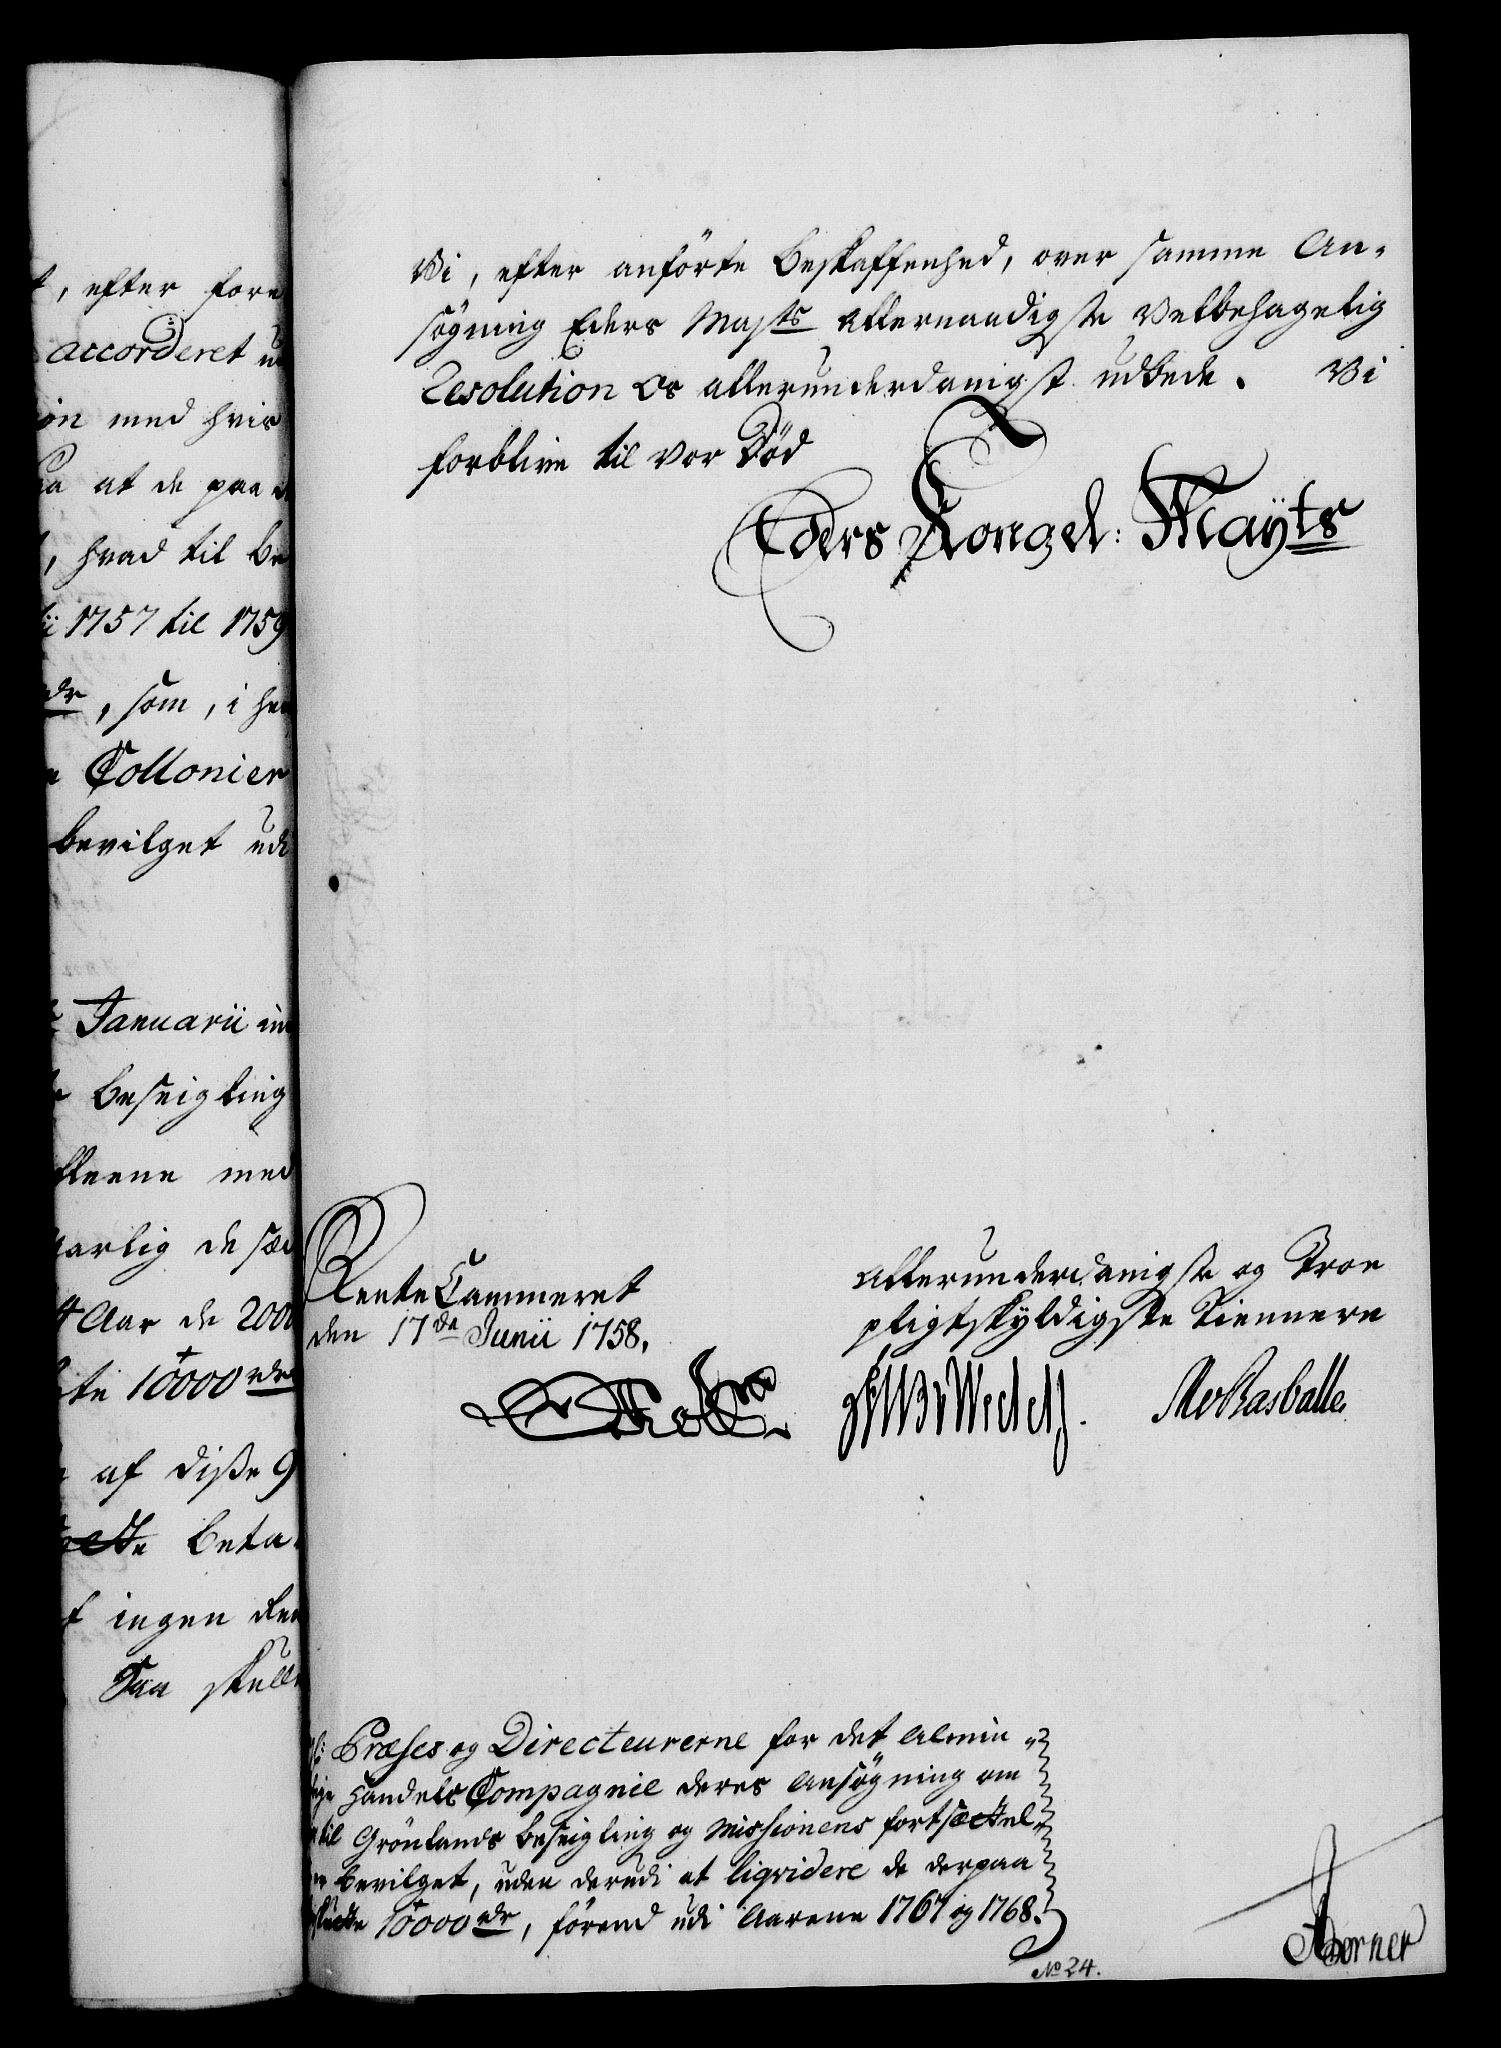 t, efter fore
accorderet u
on med hvis
at de paa
, hvad til Be
ii 1757 til 1759
rdr, som, i hen
Collonier
bevilget udi
Januarii in
Beseigling
med
aarlig de
4 Aar de 2000
10000 rdr
af diße 9
Beta
ingen
Saa skulle
Vi, efter anförte Beskaffenhed, over samme An-
søgning Eders Majts Allernaadigste Velbehagelig
Resolution os allerunderdanigst udbede. Vi
forblive til vor Död
Eders Kongel: Mayts
Rente Cammeret
den 17de Junii 1758.
Allerunderdanigste og Troe
pligtskyldigste Tiennere
Præses og Directeurerne for det Almin-
lige Handels Compagnie deres Ansøgning om
til Grönlands Beseigling og Missionens fortsættel-
bevilget, uden derudi at liqvidere de derpaa
10000 rdr, förend udi Aarene 1767 og 1768.
No 24.